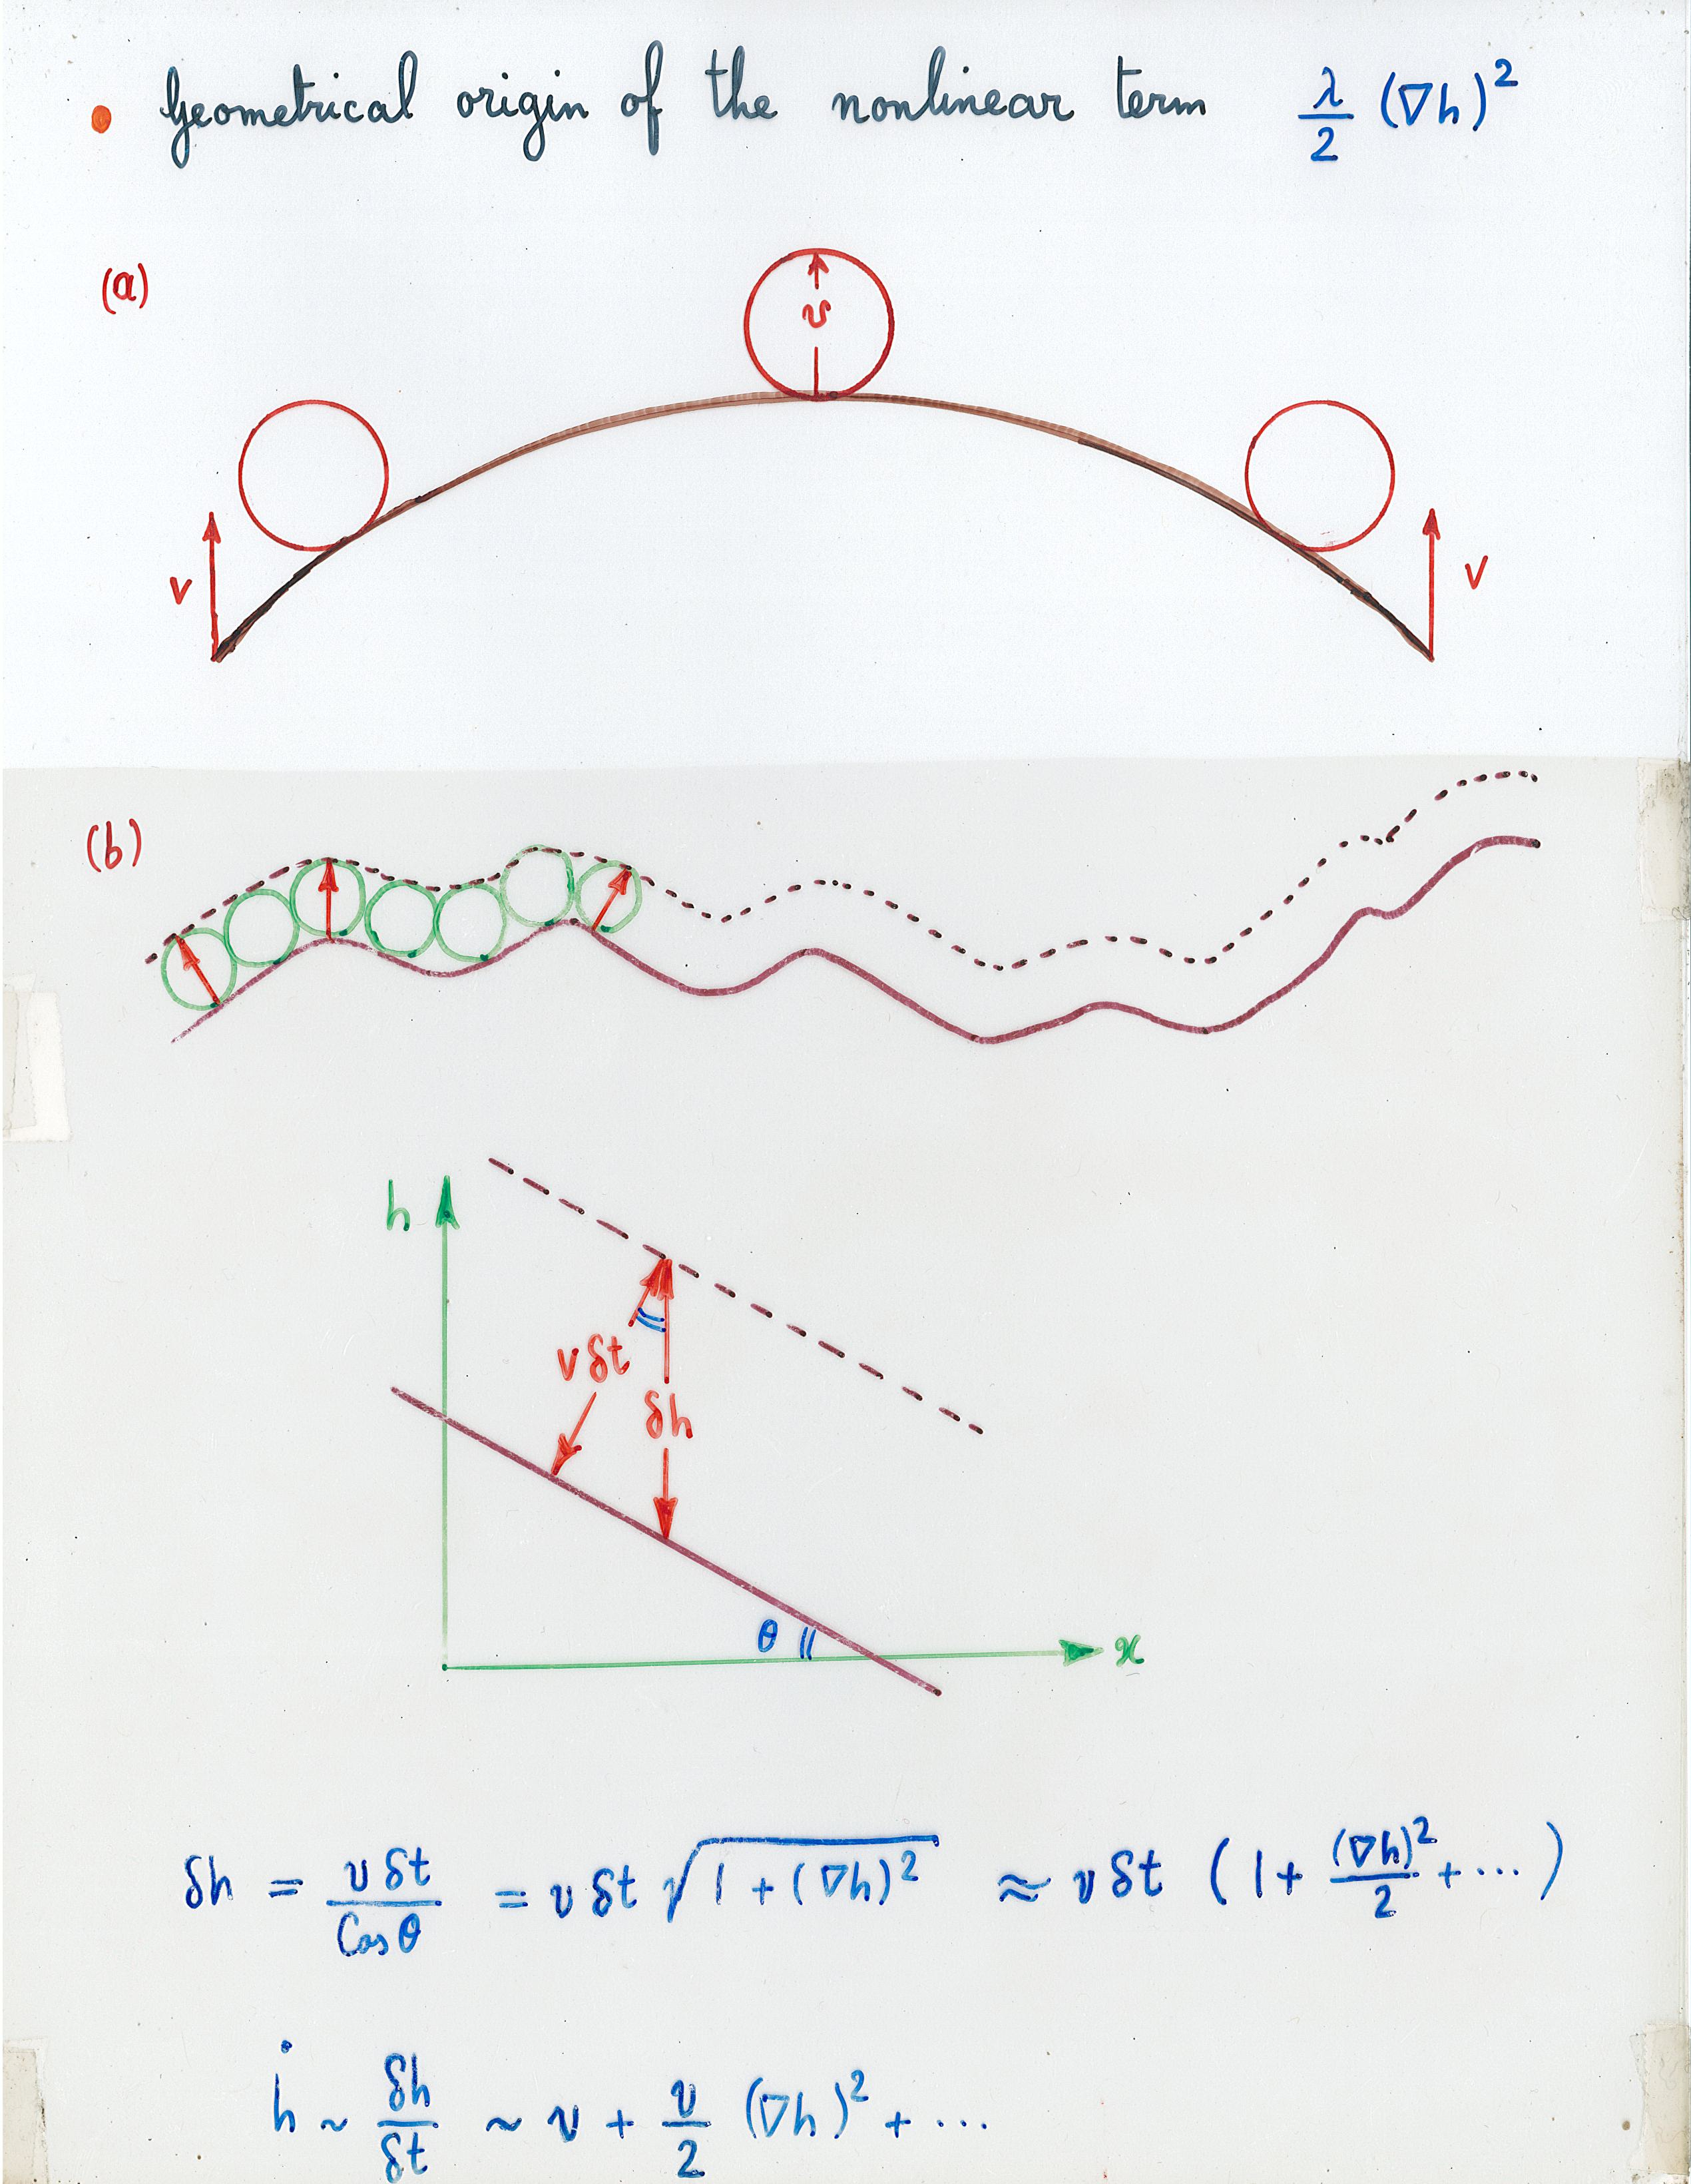 • Geometrical origin of the nonlinear term λ/2 (∇h)²
(a)
v
v
v
(b)
h
v δt
δh
θ
x
δh = v δt / Cos θ = v δt √(1 + (∇h)²) ≈ v δt (1 + (∇h)²/2 + ...)
ḣ ~ δh/δt ~ v + v/2 (∇h)² + ...